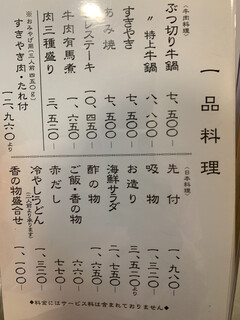 一品料理
(牛肉料理)
ぶつ切り牛鍋 七、五〇〇
〃 特上牛鍋 八、八〇〇
すきやき 七、五〇〇
あみ焼 七、五〇〇
レステーキ 一〇、四五〇
牛肉有馬煮 一、六五〇
肉三種盛り 三、五二〇
※おみやげ用(三人前 四五〇g)
すきやき肉・たれ付 一二、九六〇より
(日本料理)
先付 一、九八〇
吸物 一、三二〇
お造り 三、五二〇より
海鮮サラダ 二、七五〇
酢の物 一、六五〇
ご飯・香の物 一、六五〇
赤だし 七七〇
冷やしうどん 六六〇
香の物盛合せ 一、一〇〇
◆料金にはサービス料は含まれておりません◆